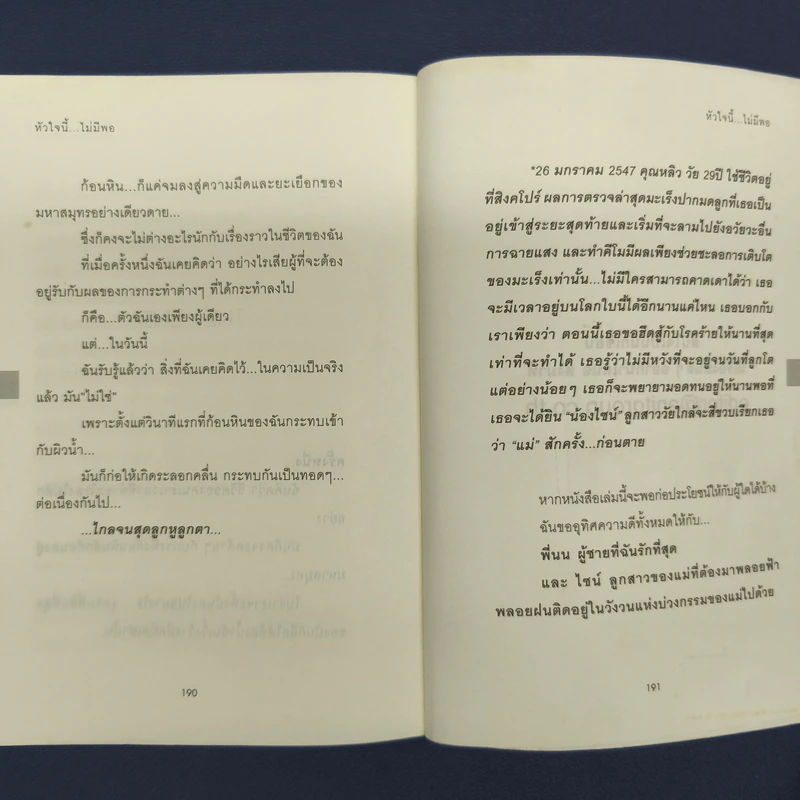 หัวใจนี้...ไม่มีพอ
ก้อนหิน...ก็แค่จมลงสู่ความมืดและยะเยือกของ
มหาสมุทรอย่างเดียวดาย...
ซึ่งก็คงจะไม่ต่างอะไรนักกับเรื่องราวในชีวิตของฉัน
ที่เมื่อครั้งหนึ่งฉันเคยคิดว่า อย่างไรเสียผู้ที่จะต้อง
อยู่รับกับผลของการกระทำต่างๆ ที่ได้กระทำลงไป
ก็คือ...ตัวฉันเองเพียงผู้เดียว
แต่...ในวันนี้
ฉันรับรู้แล้วว่า สิ่งที่ฉันเคยคิดไว้...ในความเป็นจริง
แล้ว มัน"ไม่ใช่"
เพราะตั้งแต่วินาทีแรกที่ก้อนหินของฉันกระทบเข้า
กับผิวน้ำ...
มันก็ก่อให้เกิดระลอกคลื่น กระทบกันเป็นทอดๆ...
ต่อเนื่องกันไป...
...ไกลจนสุดลูกหูลูกตา...
190
หัวใจนี้...ไม่มีพอ
*26 มกราคม 2547 คุณหลิว วัย 29ปี ใช้ชีวิตอยู่
ที่สิงคโปร์ ผลการตรวจล่าสุดมะเร็งปากมดลูกที่เธอเป็น
อยู่เข้าสู่ระยะสุดท้ายและเริ่มที่จะลามไปยังอวัยวะอื่น
การฉายแสง และทำคีโมมีผลเพียงช่วยชะลอการเติบโต
ของมะเร็งเท่านั้น...ไม่มีใครสามารถคาดเดาได้ว่า เธอ
จะมีเวลาอยู่บนโลกใบนี้ได้อีกนานแค่ไหน เธอบอกกับ
เราเพียงว่า ตอนนี้เธอขอฮึดสู้กับโรคร้ายให้นานที่สุด
เท่าที่จะทำได้ เธอรู้ว่าไม่มีหวังที่จะอยู่จนวันที่ลูกโต
แต่อย่างน้อยๆ เธอก็จะพยายามอดทนอยู่ให้นานพอที่
เธอจะได้ยิน "น้องไซน์" ลูกสาววัยใกล้จะสี่ขวบเรียกเธอ
ว่า "แม่" สักครั้ง...ก่อนตาย
หากหนังสือเล่มนี้จะพอก่อประโยชน์ให้กับผู้ใดได้บ้าง
ฉันขออุทิศความดีทั้งหมดให้กับ...
พี่นน ผู้ชายที่ฉันรักที่สุด
และ ไซน์ ลูกสาวของแม่ที่ต้องมาพลอยฟ้า
พลอยฝนติดอยู่ในวังวนแห่งบ่วงกรรมของแม่ไปด้วย
191